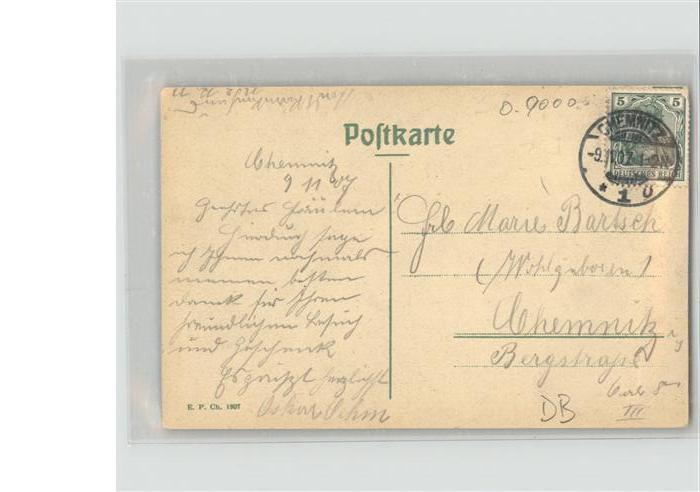 O. 9000
5 5
DEUTSCHES REICH
CHEMNITZ
* 1 o
Postkarte
Chemnitz
9 11 07
Geehrtes Fräulein
Hierdurch sage
ich Ihnen nochmals
meinen besten
Dank für Ihren
freundlichen Besuch
und Geschenk
Es grüßt herzlichst
Oskar Oehm
Frl Marie Bartsch
(Wohlgeboren)
Chemnitz
Bergstraße
III
E. P. Ch. 1907
DB